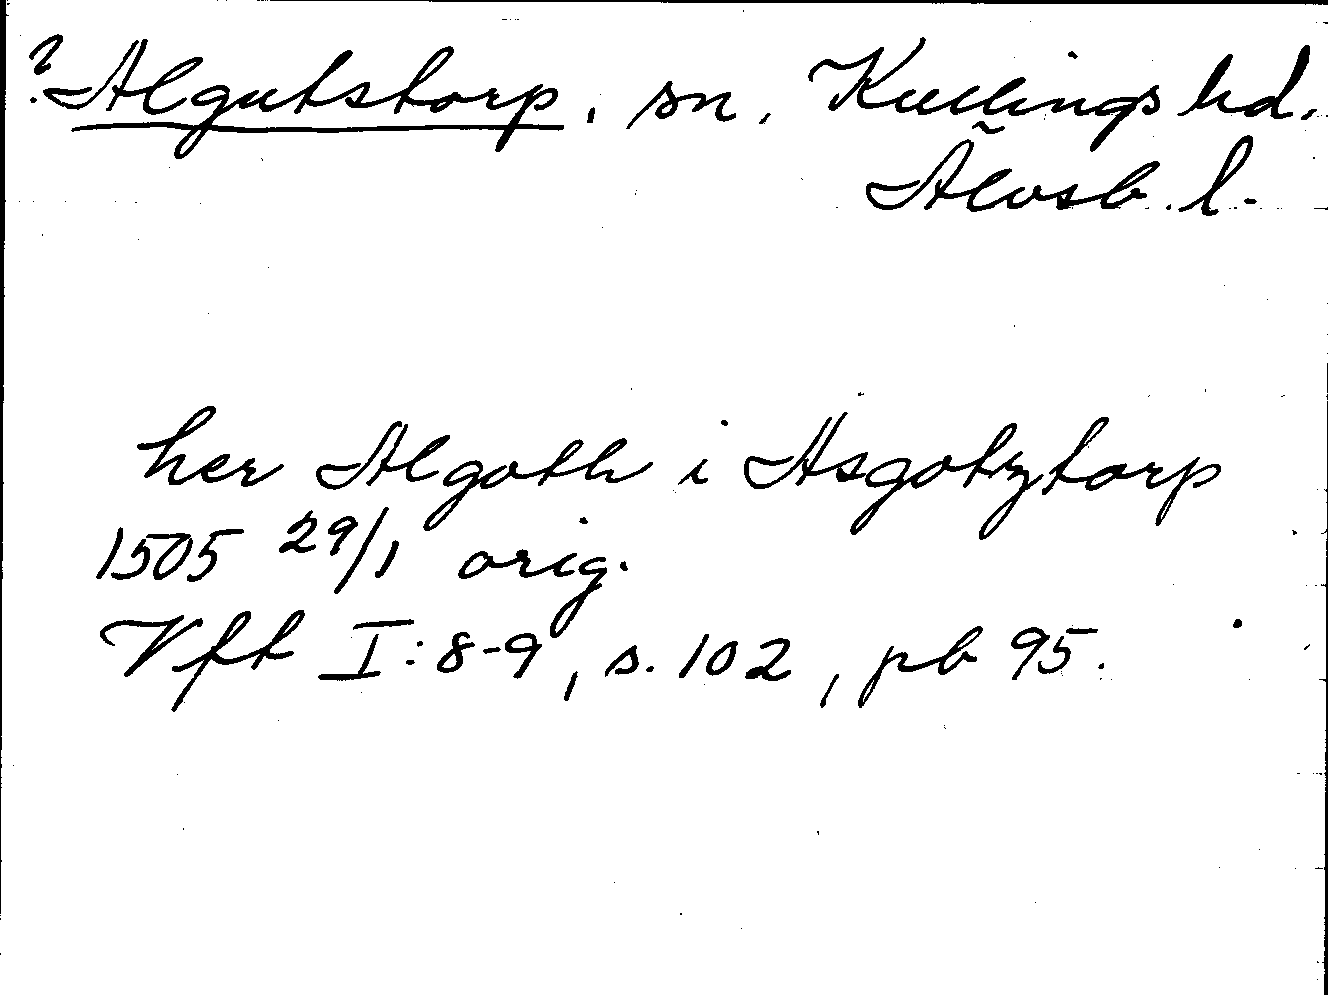 ? Algutstorp. sn. Kullings hd.
Älvsb. l.
her Algoth i Asgotztorp
1505 29/1 orig.
Vft I:8-9, s. 102, pb 95.